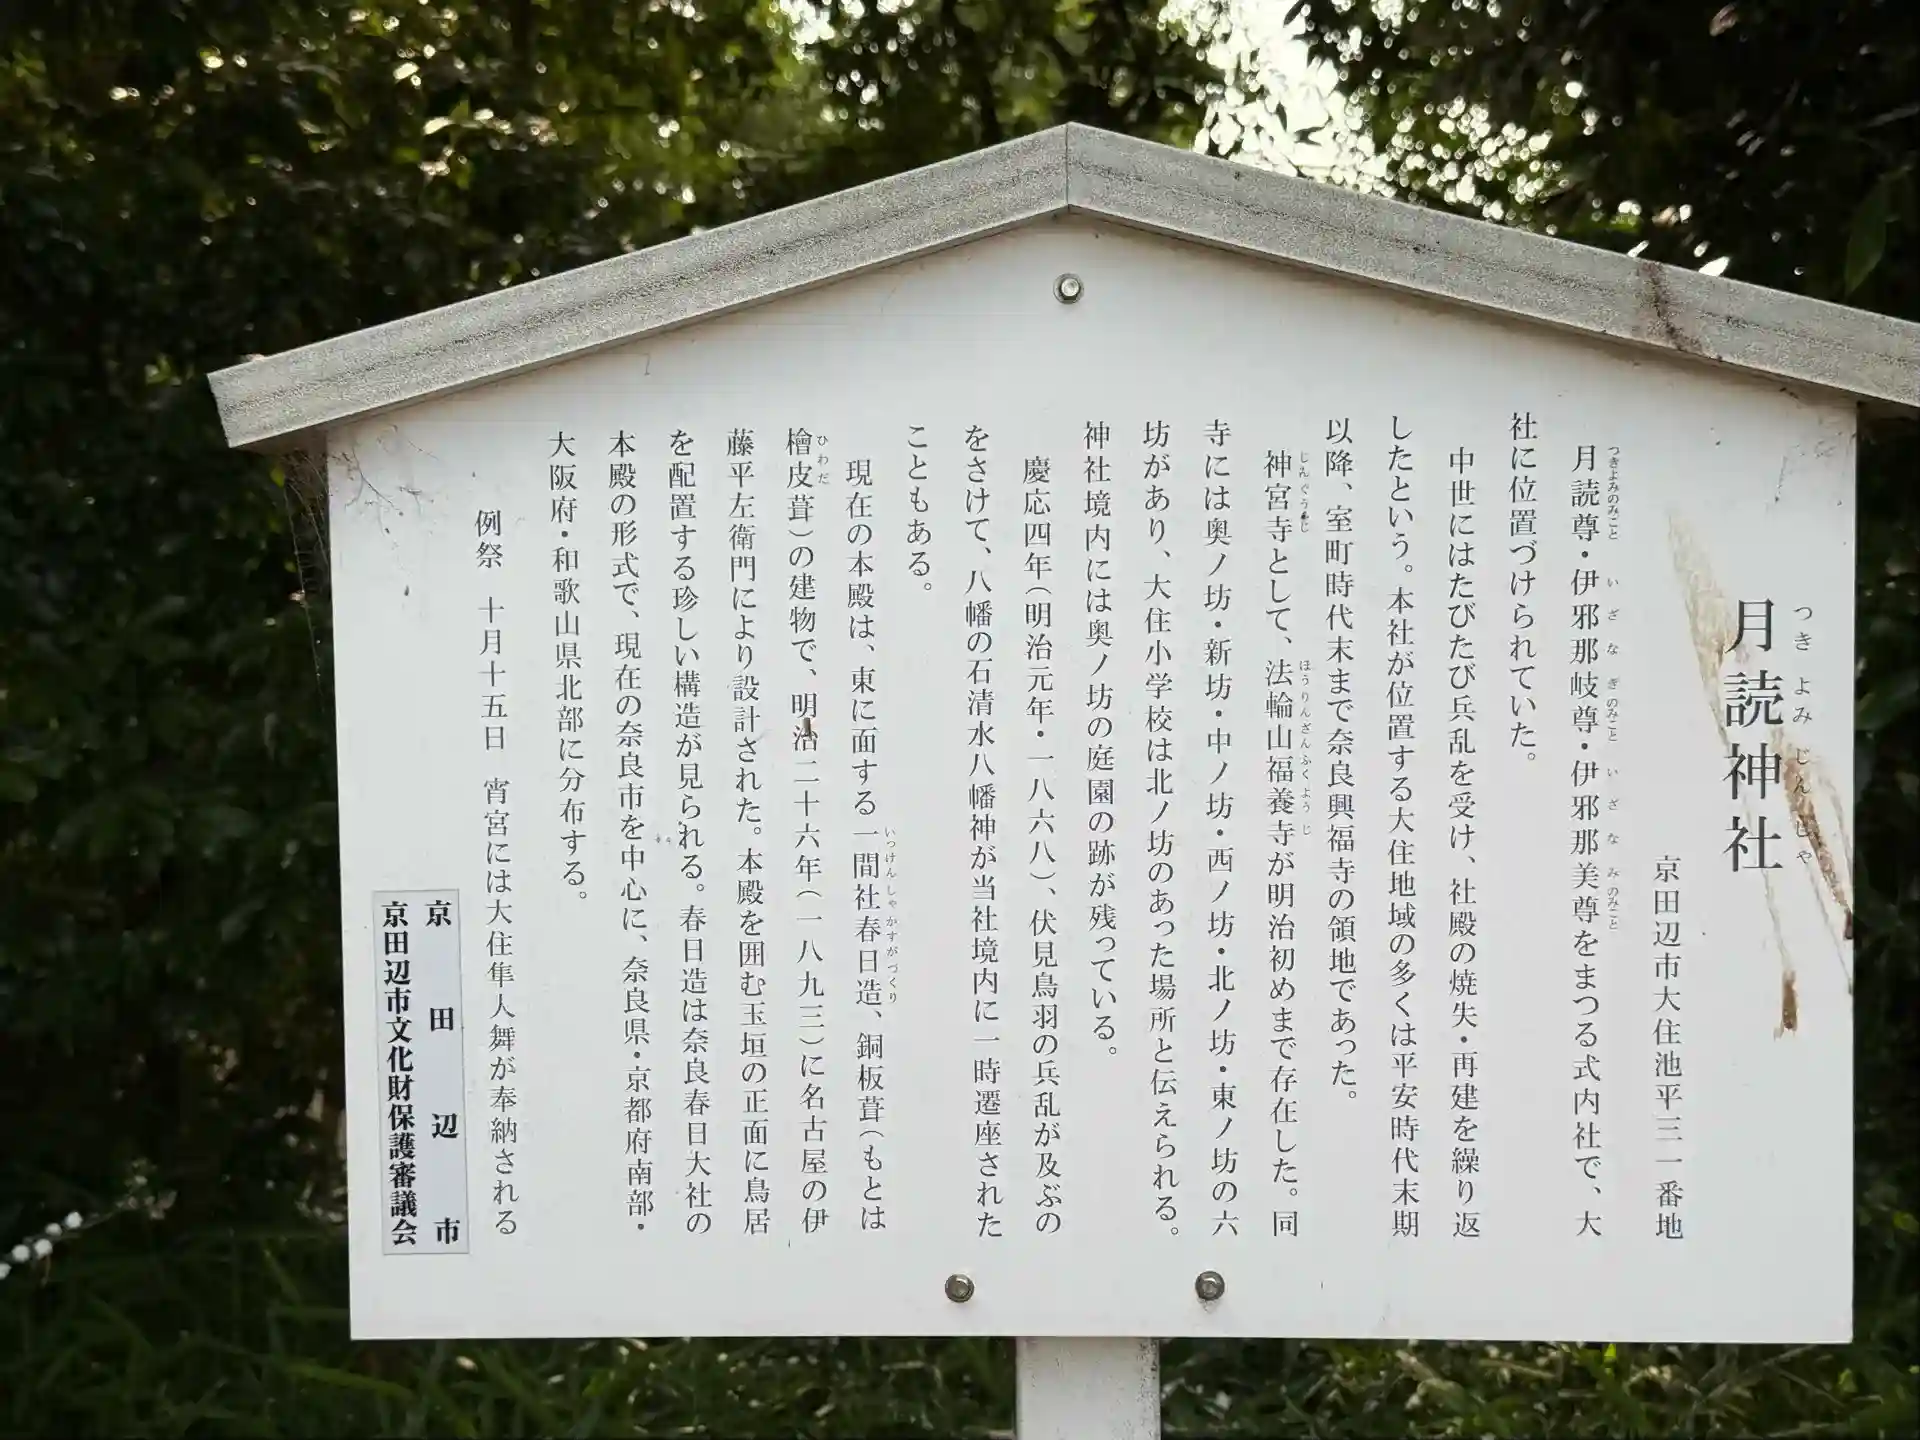 月読神社
つきよみじんじゃ
京田辺市大住池平三一番地
月読尊・伊邪那岐尊・伊邪那美尊をまつる式内社で、大
つきよみのみこと いざなぎのみこと いざなみのみこと
社に位置づけられていた。
中世にはたびたび兵乱を受け、社殿の焼失・再建を繰り返
したという。本社が位置する大住地域の多くは平安時代末期
以降、室町時代末まで奈良興福寺の領地であった。
神宮寺として、法輪山福養寺が明治初めまで存在した。同
じんぐうじ ほうりんざんふくようじ
寺には奥ノ坊・新坊・中ノ坊・西ノ坊・北ノ坊・東ノ坊の六
坊があり、大住小学校は北ノ坊のあった場所と伝えられる。
神社境内には奥ノ坊の庭園の跡が残っている。
慶応四年(明治元年・一八六八)、伏見鳥羽の兵乱が及ぶの
をさけて、八幡の石清水八幡神が当社境内に一時遷座された
こともある。
現在の本殿は、東に面する一間社春日造、銅板葺(もとは
いっけんしゃかすがづくり
檜皮葺)の建物で、明治二十六年(一八九三)に名古屋の伊
ひわだ
藤平左衛門により設計された。本殿を囲む玉垣の正面に鳥居
を配置する珍しい構造が見られる。春日造は奈良春日大社の
本殿の形式で、現在の奈良市を中心に、奈良県・京都府南部・
大阪府・和歌山県北部に分布する。
例祭 十月十五日 宵宮には大住隼人舞が奉納される
京田辺市
京田辺市文化財保護審議会